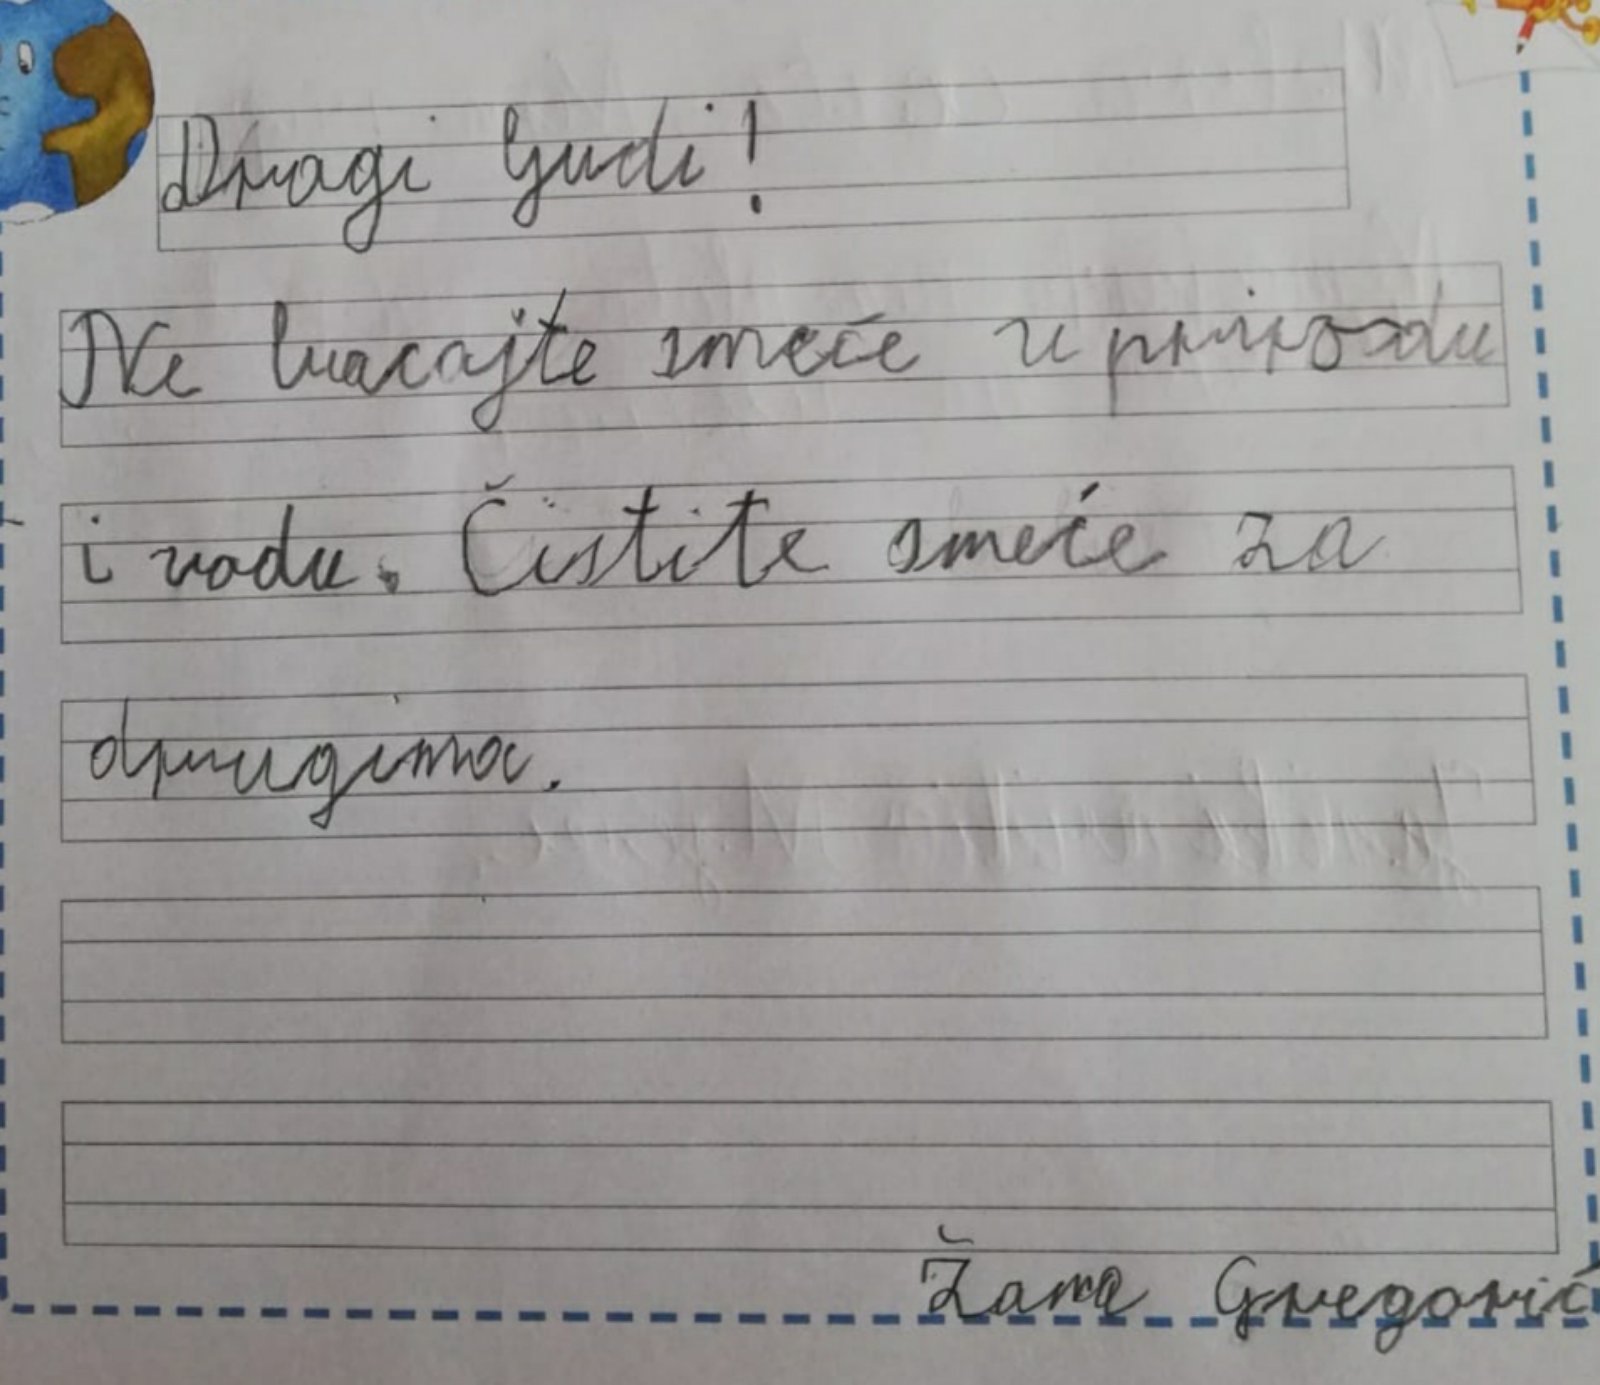 Dragi ljudi!
Ne bacajte smeće u prirodu
i vodu. Čistite smeće za
drugima.
Žana Gregorić